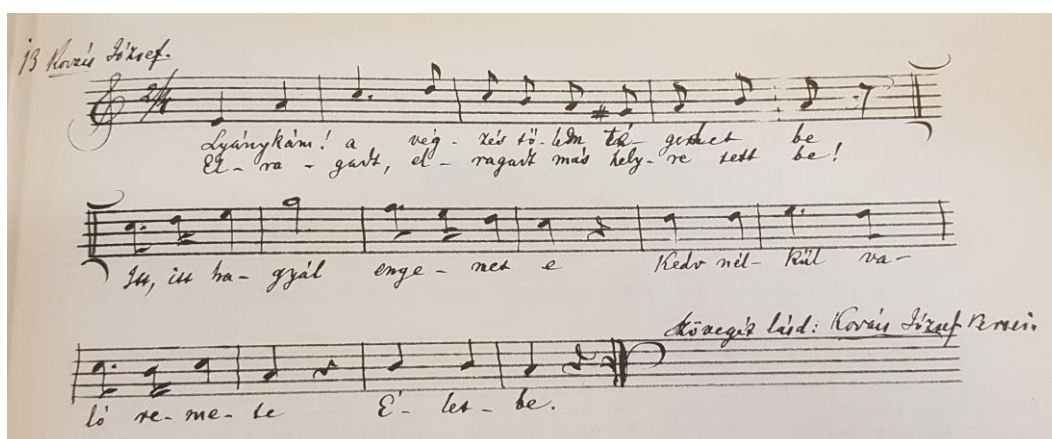 13 Kovács József.
2/4
Lyánykám! a vég- zés tö- lem té- gedet be
El- ra- gadt, el- ragadt más hely- re tett be!
Itt, itt ha- gyál engemet e Kedv nél- kül va-
Szövegét lásd: Kovács József Versei.
ló re- me- te É- let- be.